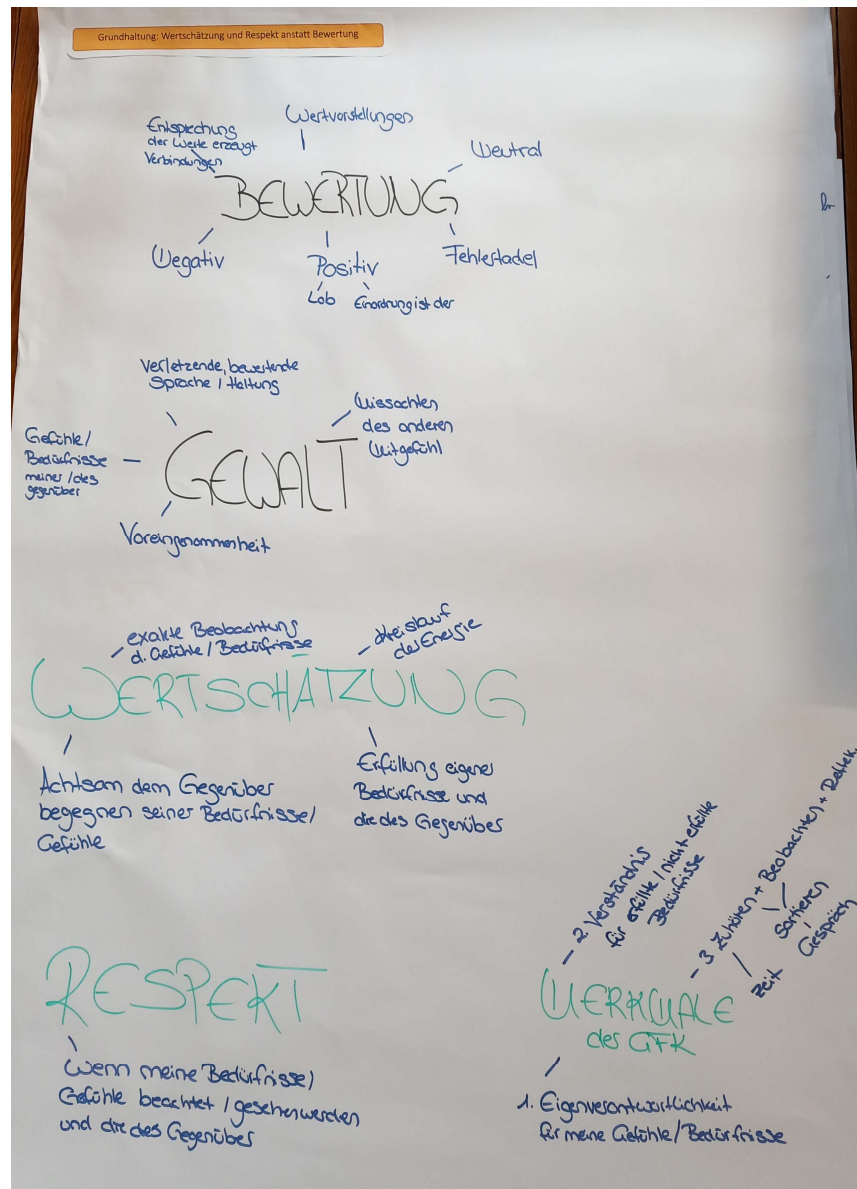 Grundhaltung: Wertschätzung und Respekt anstatt Bewertung
Entsprechung
der Werte erzeugt
Verbindungen
Wertvorstellungen
Neutral
BEWERTUNG
Negativ
Positiv
Fehlertadel
Lob
Einordnung ist der
Verletzende, bewertende
Sprache / Haltung
Missachten
des anderen
Mitgefühl
Gefühle/
Bedürfnisse
meiner / des
gegenüber
GEWALT
Voreingenommenheit
exakte Beobachtung
d. Gefühle / Bedürfnisse
Kreislauf
der Energie
WERTSCHÄTZUNG
Achtsam dem Gegenüber
begegnen seiner Bedürfnisse/
Gefühle
Erfüllung eigener
Bedürfnisse und
die des Gegenüber
2. Verständnis
für erfüllte / nicht erfüllte
Bedürfnisse
3 Zuhören + Beobachten + Reflek.
Zeit
Sortieren
Gespräch
RESPEKT
Wenn meine Bedürfnisse/
Gefühle beachtet / gesehen werden
und die des Gegenüber
MERKMALE
der GFK
1. Eigenverantwortlichkeit
für meine Gefühle / Bedürfnisse